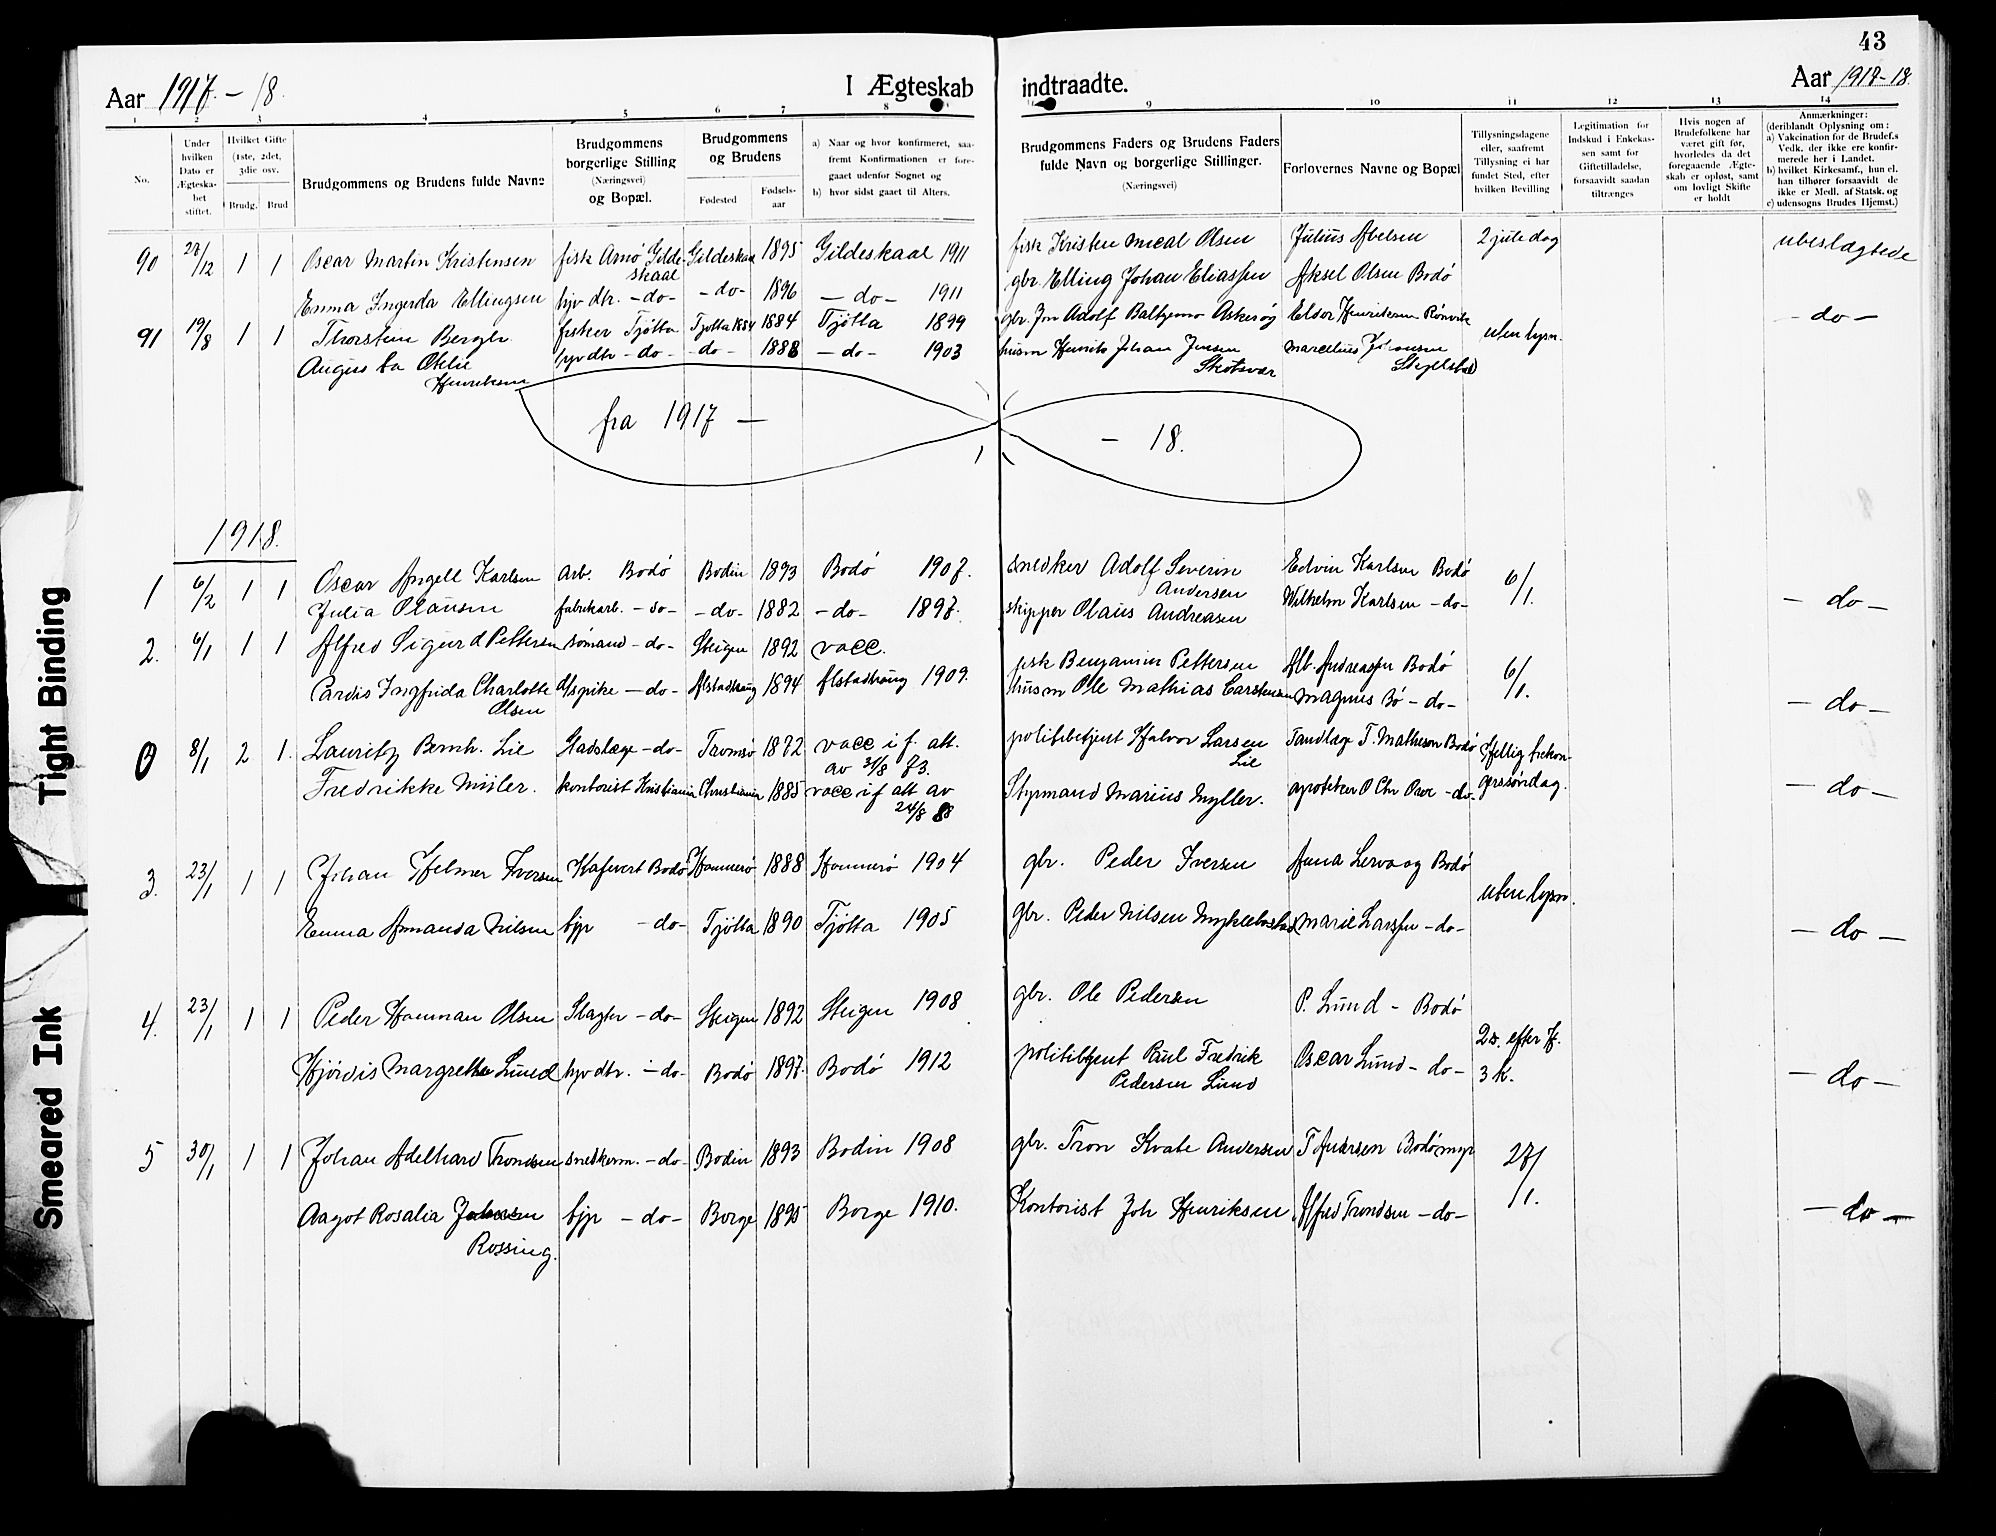 43
Aar 1917. - 18. I Ægteskab indtraadte. Aar 1917-18.
1 2 3 4 5 6 7 8 9 10 11 12 13 14
No.
Under hvilken Dato er Ægteska- bet stiftet.
Hvilket Gifte (1ste, 2det, 3die osv.
Brudg. Brud
Brudgommens og Brudens fulde Navne
Brudgommens borgerlige Stilling (Næringsvei) og Bopæl.
Brudgommens og Brudens
Fødested
Fødsels- aar
a) Naar og hvor konfirmeret, saa- fremt Konfirmationen er fore- gaaet udenfor Sognet og
b) hvor sidst gaaet til Alters.
Brudgommens Faders og Brudens Faders fulde Navn og borgerlige Stillinger.
(Næringsvei)
Forlovernes Navne og Bopæl
Tillysningsdagene eller, saafremt Tillysning ei har fundet Sted, efter hvilken Bevilling
Legitimation for Indskud i Enkekas- sen samt for Giftetilladelse, forsaavidt saadan tiltrænges
Hvis nogen af Brudefolkene har været gift før, hvorledes da det foregaaende Ægte- skab er opløst, samt om lovligt Skifte er holdt
Anmærkninger:
(deriblandt Oplysning om:
a) Vakcination for de Brudef.s Vedk. der ikke ere konfir- merede her i Landet.
b) hvilket Kirkesamf., hun el. han tilhører forsaavidt de ikke er Medl. af Statsk. og
c) udensogns Brudes Hjemst.)
90 27/12 1 1 Oscar Martin Kristensen fisk Arnø Gilde- skaal Gildeskaal 1895 Gildeskaal 1911 fisk Kristen Mical Olsen Julius Abelsen 2 juledag ubeslægtede
Emma Ingerda Ellingsen hjv dtr. - do - - do - 1896 - do - 1911 gbr. Elling Johan Eliassen Aksel Olsen Bodø
91 19/8 1 1 Thorstein Bergh fisker Tjøtta Tjøtta 1884 1884 Tjøtta 1899 gbr. Adolf Eldor Henriksen Rønvik uten lysn. - do -
Augusta Otelie Henriksen hjv dtr - do - - do - 1888 - do - 1903 husm Henrik Johan Jensen Skotsvær Marcelius Johansen
fra 1917 - - 18.
1918.
1 6/2 1 1 Oscar Angell Karlsen Arb. Bodø Bodin 1893 Bodø 1907. snedker Adolf Severin Andersen Edvin Karlsen Bodø 6/1. - do -
Julia Olausen fabrikarb. - do - - do - 1882 - do - 1897. skipper Olaus Andreasen Wilhelm Karlsen - do -
2. 6/1 1 1 Alfred Sigurd Pettersen sømand - do - Steigen 1892 vacc. fisk Benjamin Pettersen Alb. Andreassen Bodø 6/1. - do -
Cardis Ingfrida Charlotte Olsen - do - Alstadhaug 1894 Alstadhaug 1909. husm Ole Mathias Carstensen Magnus Bø - do -
0 8/1 2 1. Lauritz Bernh. Lie Stadslæge - do - Tromsø 1872 vacc i f. att. av 31/8 73. politibetjent Halvor Larsen Lie Tandlæge T. Mathesen Bodø Hellig trekon- gerssøndag. - do -
Fredrikke Müler. kontorist Kristiania Christiania 1885 vacc i f att av 24/8 88 Styrmand Marius Myller. apoteker O Chr - do -
3. 23/1 1 1 Johan Hjelmer Iversen Kafevert Bodø Hammerø 1888 Hammerø 1904 gbr. Peder Iversen Anna Lervaag Bodø uten lysn. - do -
Emma Amanda Nilsen hjp - do - Tjøtta 1890 Tjøtta 1905 gbr. Peder Nilsen Myklebostad Marie Larssen - do -
4. 23/1 1 1 Peder Hamman Olsen Slagter - do - Steigen 1892 Steigen 1908 gbr. Ole Pedersen P. Lund - Bodø 2 s. efter H. 3 K. - do -
Hjørdis Margrethe Lund hjv dtr. - do - Bodø 1897. Bodø 1912 politibtjent Paul Fredrik Pedersen Lund Oscar Lund - do -
5 30/1 1 1 Johan Adelhard Trondsen snedkerm. - do - Bodin 1893 Bodin 1908 gbr. Tron Kvale Andersen T Andersen Bodømyr 27/1. - do -
Aagot Rosalia Rossing. hjp - do - Borge 1895 Borge 1910. Kontorist Joh Henriksen Alfred Trondsen - do -
Tight Binding
Smeared Ink